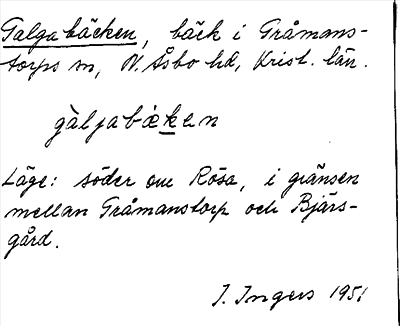 Galgabäcken, bäck i Gråmans-
torps sn, N. Åsbo hd, Krist. län.
gàljabæ̀ken
Läge: söder om Rösa, i gränsen
mellan Gråmanstorp och Bjärs-
gård.
I. Ingers 1951